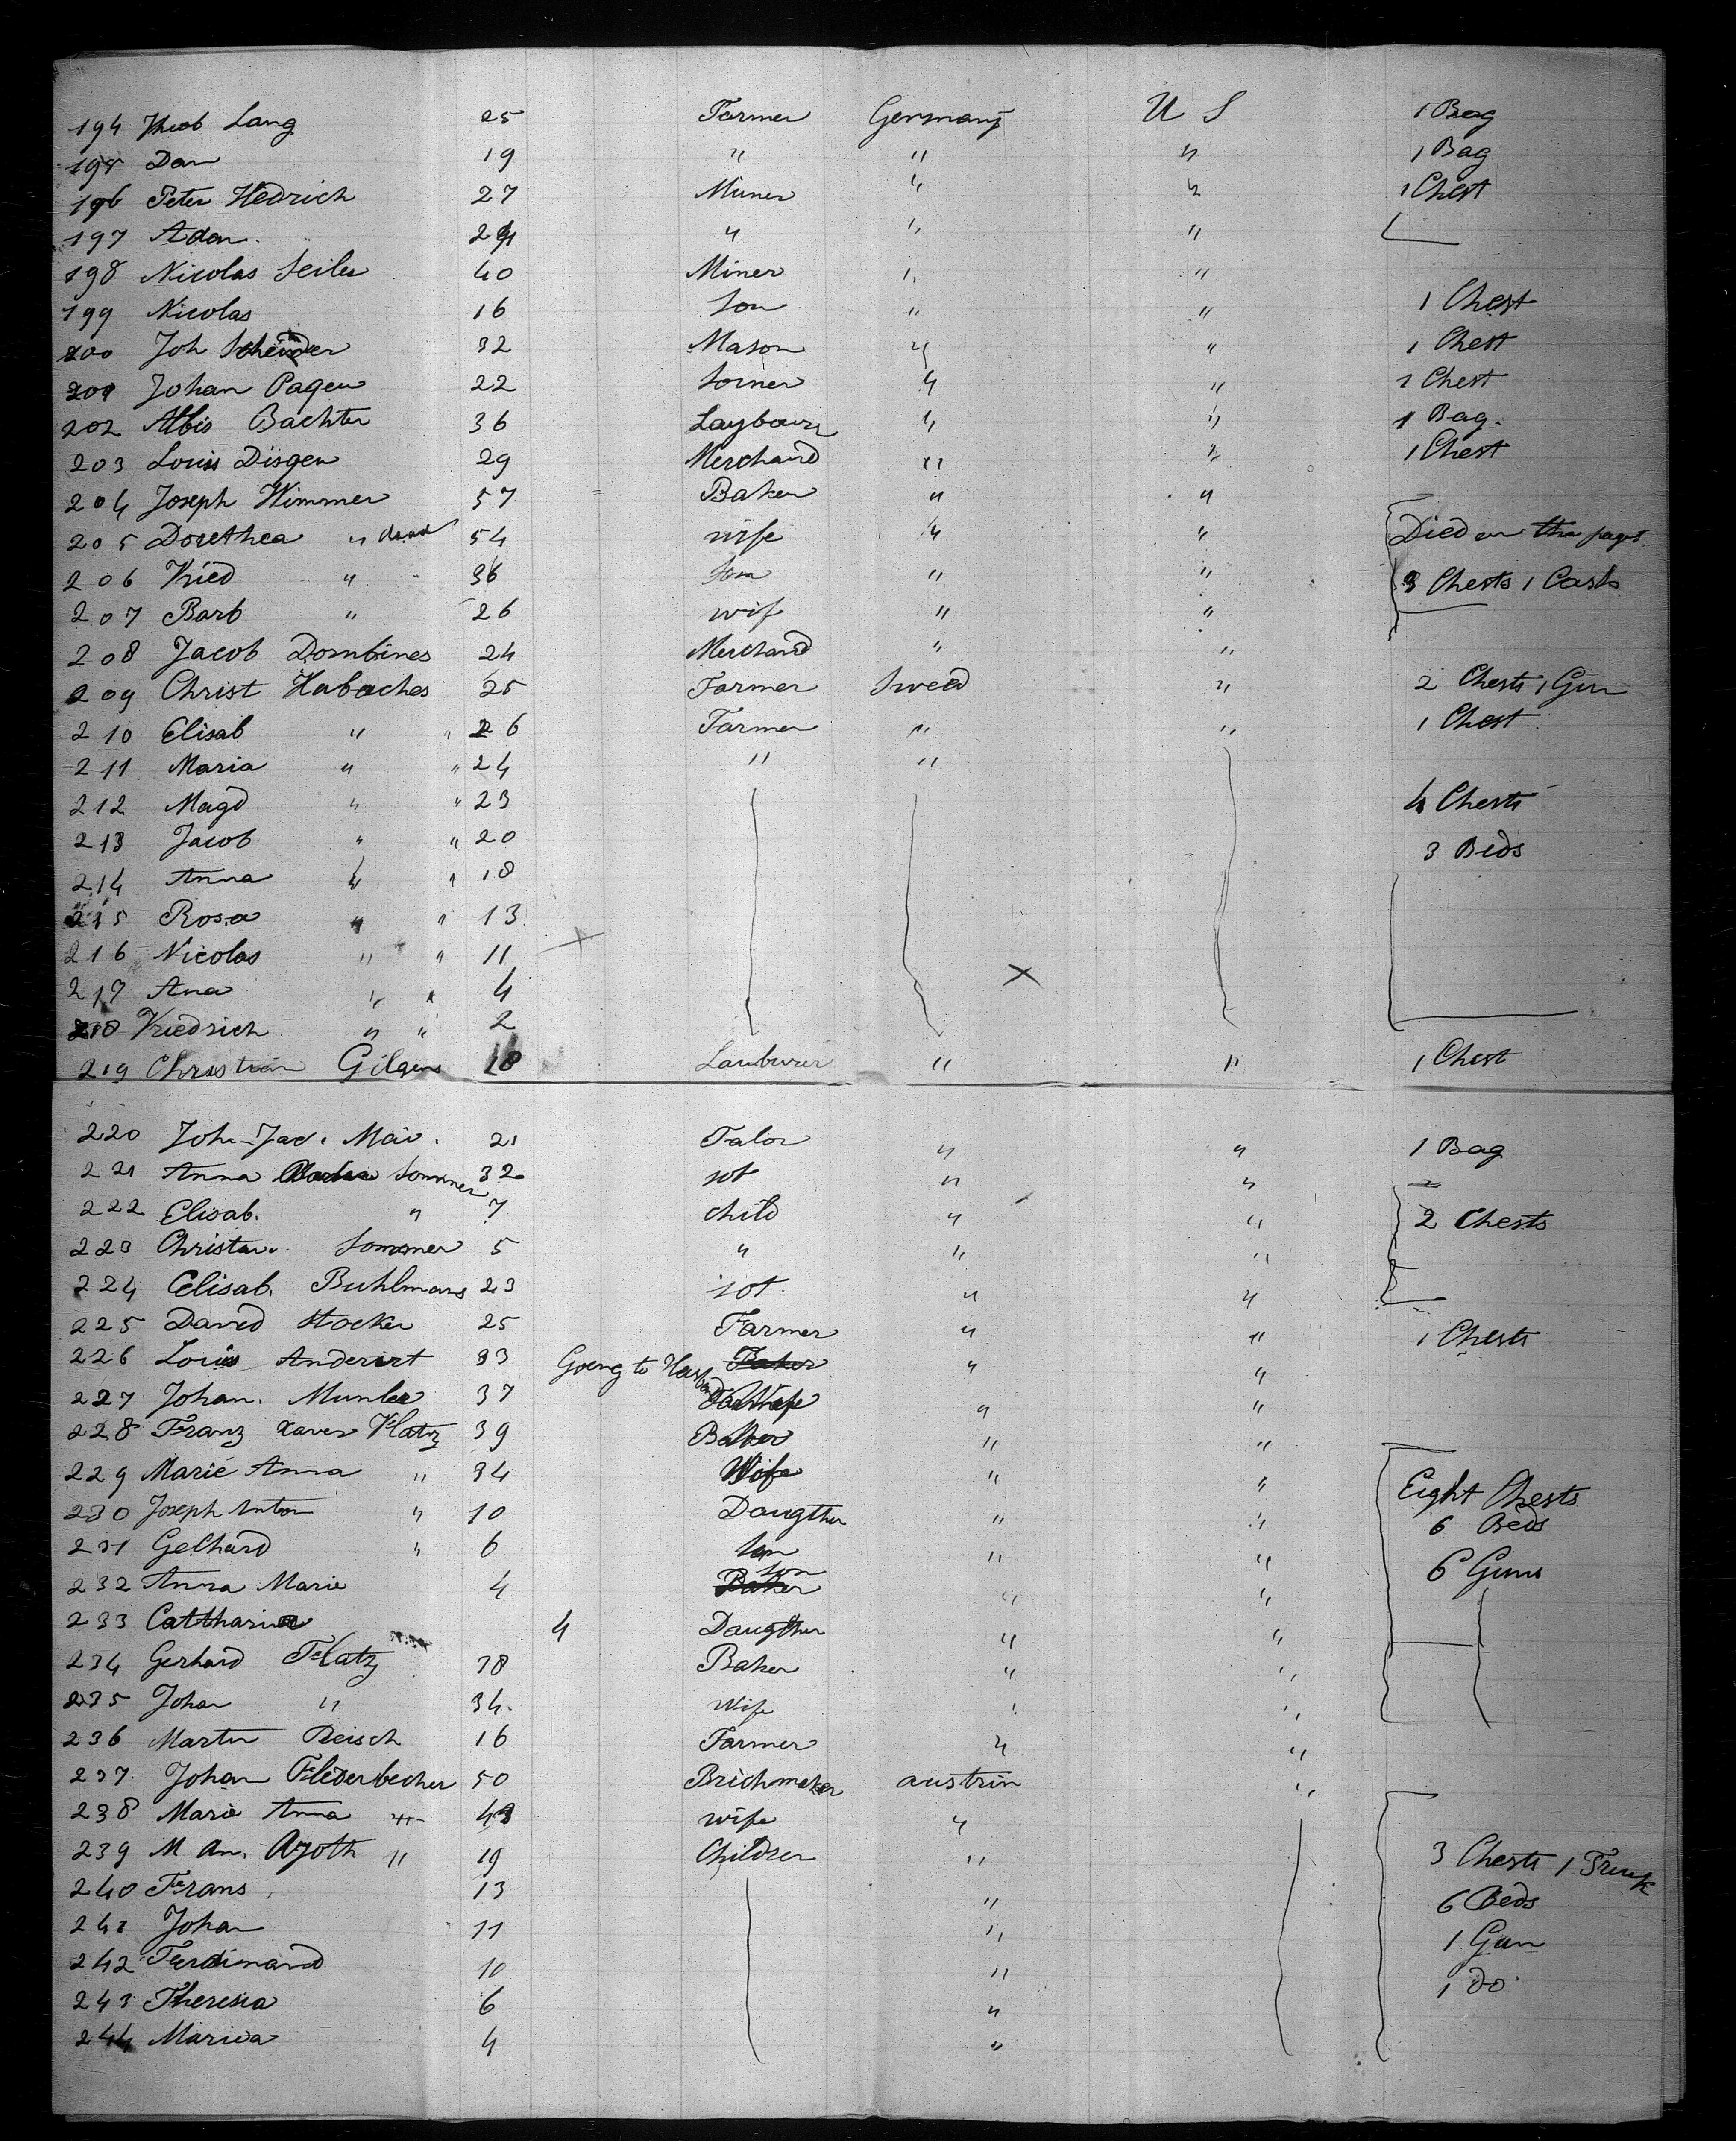 194 Jacob Lang 25 Farmer Germany U S 1 Bag
195 Dan 19 " " " 1 Bag
196 Peter Hedrich 27 Miner " " 1 Chest
197 Adam. 29 " " "
198 Nicolas Seiler 40 Miner " "
199 Nicolas 16 Son " " 1 Chest
200 Joh 32 Mason " " 1 Chest
201 Johan Pagen 22 " " 1 Chest
202 Albis Bachter 36 " " 1 Bag.
203 Louis Disgen 29 Merchand " " 1 Chest
204 Joseph Wimmer 57 Baker " "
205 Dorethea " dead 54 wife " " Died on the
206 Fried " 36 Son " " 3 Chests 1 Cask
207 Barb " 26 wif " "
208 Jacob Dombines 24 Merchand " "
209 Christ Habaches 25 Farmer Swed " 2 Chests 1 Gun
210 Elisab " " 26 Farmer " " 1 Chest
211 Maria " " 24 " "
212 Magd " " 23 4 Chests
213 Jacob " " 20 3 Beds
214 Anna " " 18
215 Rosa " " 13
216 Nicolas " " 11 X
217 Ana " " 4 X
218 Friedrich " " 2
219 Christian Gilgens 18 " " 1 Chest
220 Joh-Jac. Mai. 21 Talor " " 1 Bag
221 Anna Sommer 32 not " "
222 Elisab. " 7 child " " 2 Chests
223 Christan. Sommer 5 " " "
224 Elisab. Buhlmans 23 not " "
225 David Stocker 25 Farmer " " 1 Chests
226 Louis Anderirt 33 Goeng to Husband Baker " "
227 Johan. Munler 37 " "
228 Franz Xaver Flatz 39 Baker " "
229 Marie Anna " 34 Wife " " Eight Chests
230 Joseph Anton " 10 Daugther " " 6 Beds
231 Gelhard " 6 Son " " 6 Guns
232 Anna Marie 4 Baker son " "
233 Cattharina 4 Daugther " "
234 Gerhard Flatz 38 Baker " "
235 Johan " 34. Wife " "
236 Martin Reisch 16 Farmer " "
237. Johan Flederbecher 50 Brichmaker austrin "
238 Marie Anna " 43 wife "
239 M An. Azoth " 19 Children " 3 Chests 1 Trunk
240 Frans 13 " 6 Beds
241 Johan 11 " 1 Gun
242 Ferdinand 10 " 1 do
243 Theresia 6 "
244 Mariea 4 "